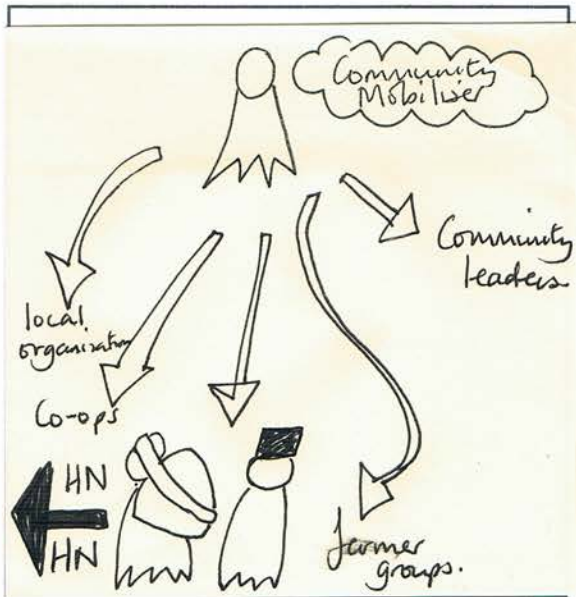 Community
Mobiliser
Community
leaders.
local
organization
Co-ops
HN
HN
farmer
groups.